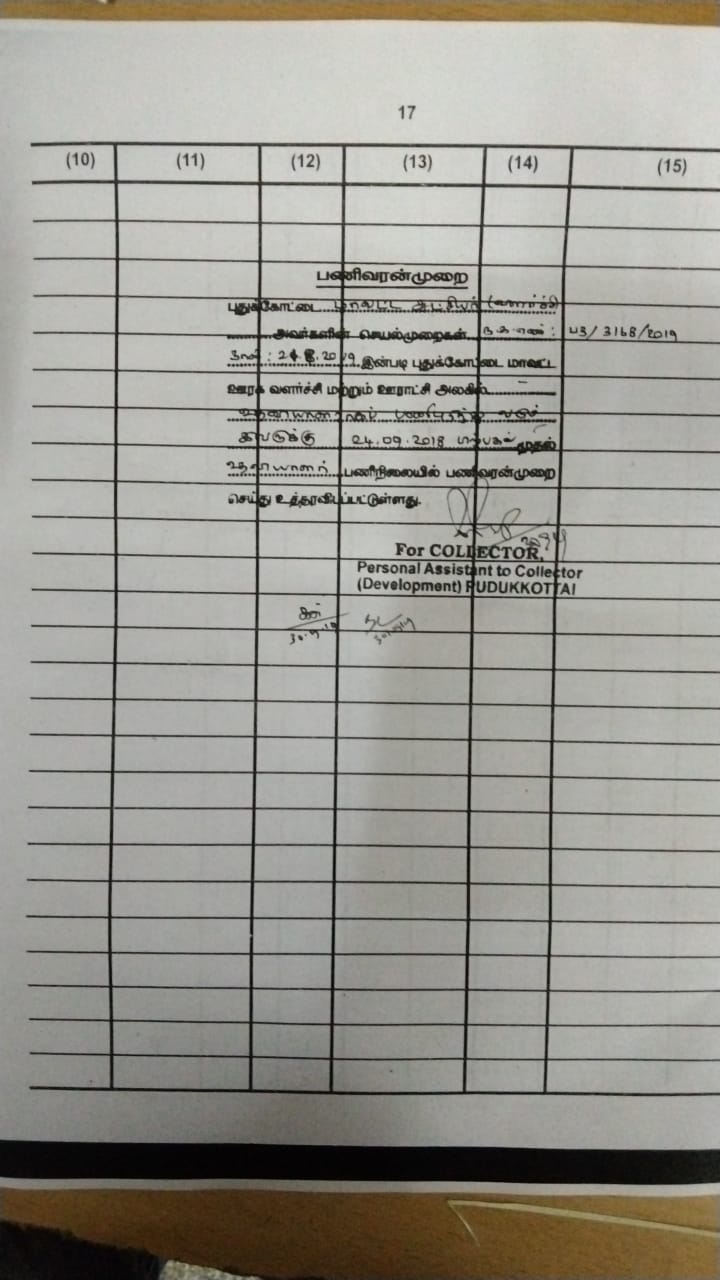 17
(10) (11) (12) (13) (14) (15)
பணிவரன்முறை
புதுக்கோட்டை மாவட்ட ஆட்சியர் (வளர்ச்சி)
அவர்களின் செயல்முறைகள் ந.க.எண்: ப3/3168/2019
நாள்: .8.2019 இன்படி புதுக்கோட்டை மாவட்ட
ஊரக வளர்ச்சி மற்றும் ஊராட்சி அலகில்
உதவியாளராகப் பணிபுரிந்து வரும்
இவருக்கு 24.09.2018 முற்பகல் முதல்
உதவியாளர் பணிநிலையில் பணிவரன்முறை
செய்து உத்தரவிடப்பட்டுள்ளது.
For COLLECTOR,
Personal Assistant to Collector
(Development) PUDUKKOTTAI
30.9.19